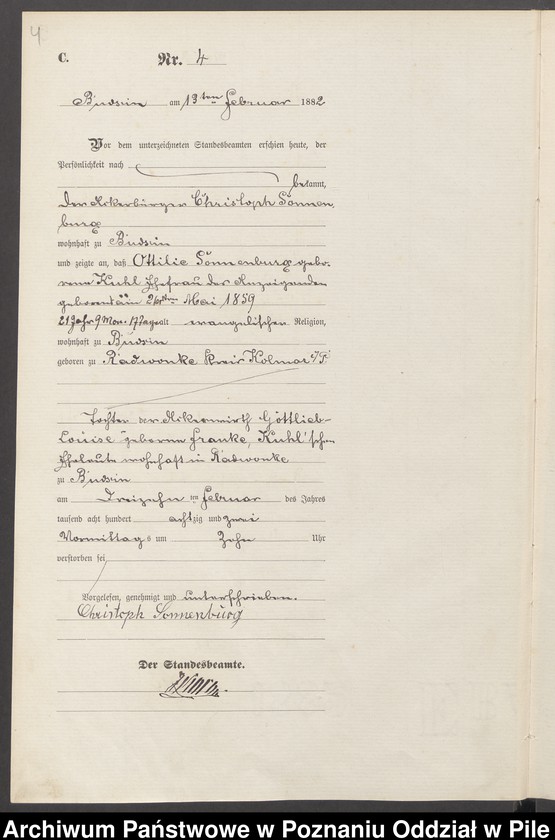 4
C.
Nr. 4
Budsin am 13ten Februar 1882
Vor dem unterzeichneten Standesbeamten erschien heute, der
Persönlichkeit nach
bekannt,
der Ackerbürger Christoph Sonnen
burg
wohnhaft zu Budsin
und zeigte an, daß Ottilie Sonnenburg gebo-
rene Kuhl Ehefrau des Anzeigenden
geboren am 26ten Mai 1859
21 Jahr 9 Mon. 17 Tage alt evangelischer Religion,
wohnhaft zu Budsin
geboren zu Radwonke Kreis Kolmar i/P
Tochter der Ackerwirth Gottlieb-
Louise geborene Franke, Kuhl'schen
Eheleute wohnhaft in Radwonke
zu Budsin
am Dreizehn ten Februar des Jahres
tausend acht hundert achtzig und zwei
Vormittags um Zehn Uhr
verstorben sei
Vorgelesen, genehmigt und unterschrieben.
Christoph Sonnenburg
Der Standesbeamte.
Archiwum Państwowe w Poznaniu Oddział w Pile